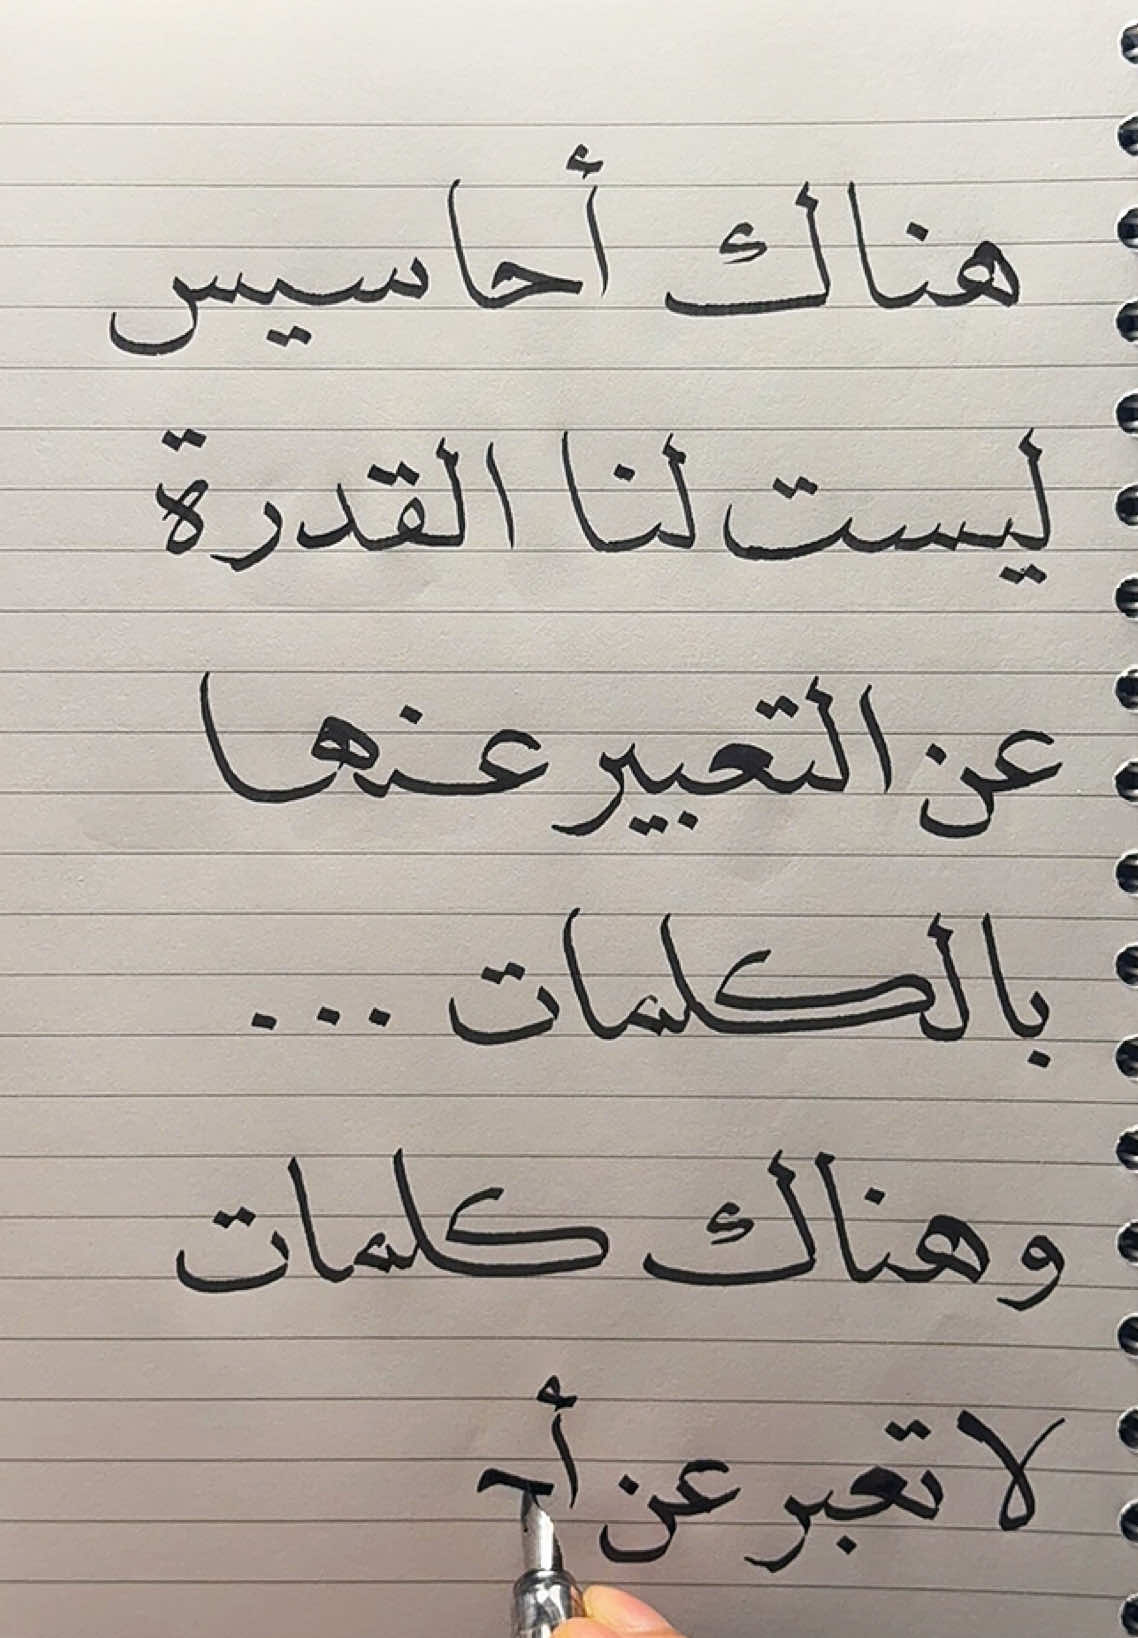 هناك أحاسيس
ليست لنا القدرة
عن التعبير عنها
بالكلمات ...
وهناك كلمات
لا تعبر عن أح